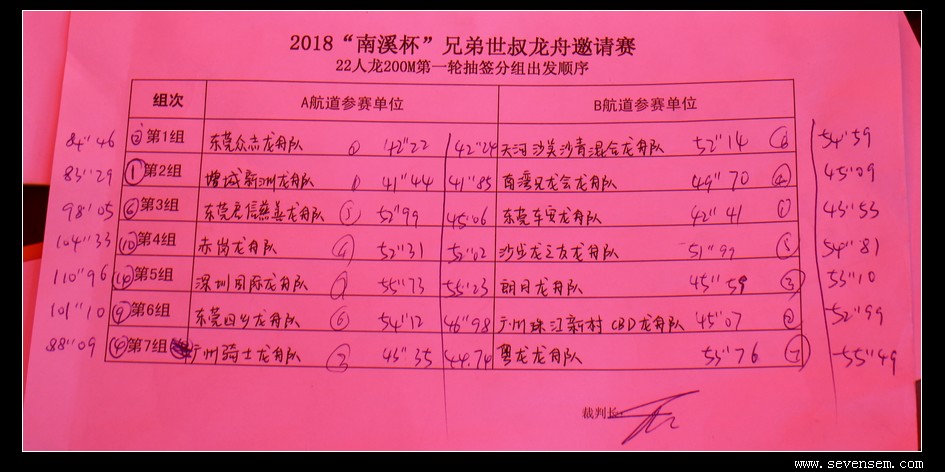 2018“南溪杯”兄弟世叔龙舟邀请赛
22人龙200M第一轮抽签分组出发顺序
组次 A航道参赛单位 B航道参赛单位
84"46 ② 第1组 东莞众志龙舟队 ② 42"22 42"24 天河沙美沙青混合龙舟队 52"14 ⑥ 54"59
83"29 ① 第2组 增城新洲龙舟队 ① 41"44 41"85 南湾兄龙会龙舟队 49"70 ④ 45"09
98"05 ⑥ 第3组 东莞君信慈善龙舟队 ⑤ 52"99 45"06 东莞车宝龙舟队 42"41 ① 43"53
104"33 ⑩ 第4组 赤岗龙舟队 ④ 52"31 52"02 龙之友龙舟队 51"99 ⑤ 54"81
110"96 第5组 深圳国际龙舟队 ⑦ 55"73 55"23 朗日龙舟队 45"59 ③ 53"10
101"10 ⑨ 第6组 东莞四乡龙舟队 ⑥ 54"12 46"98 广州珠江新村CBD龙舟队 45"07 ② 52"99
88"09 ④ 第7组 广州骑士龙舟队 ③ 43"35 44.74 粤龙龙舟队 53"76 ⑦ 55"49
裁判长:
www.sevensem.com